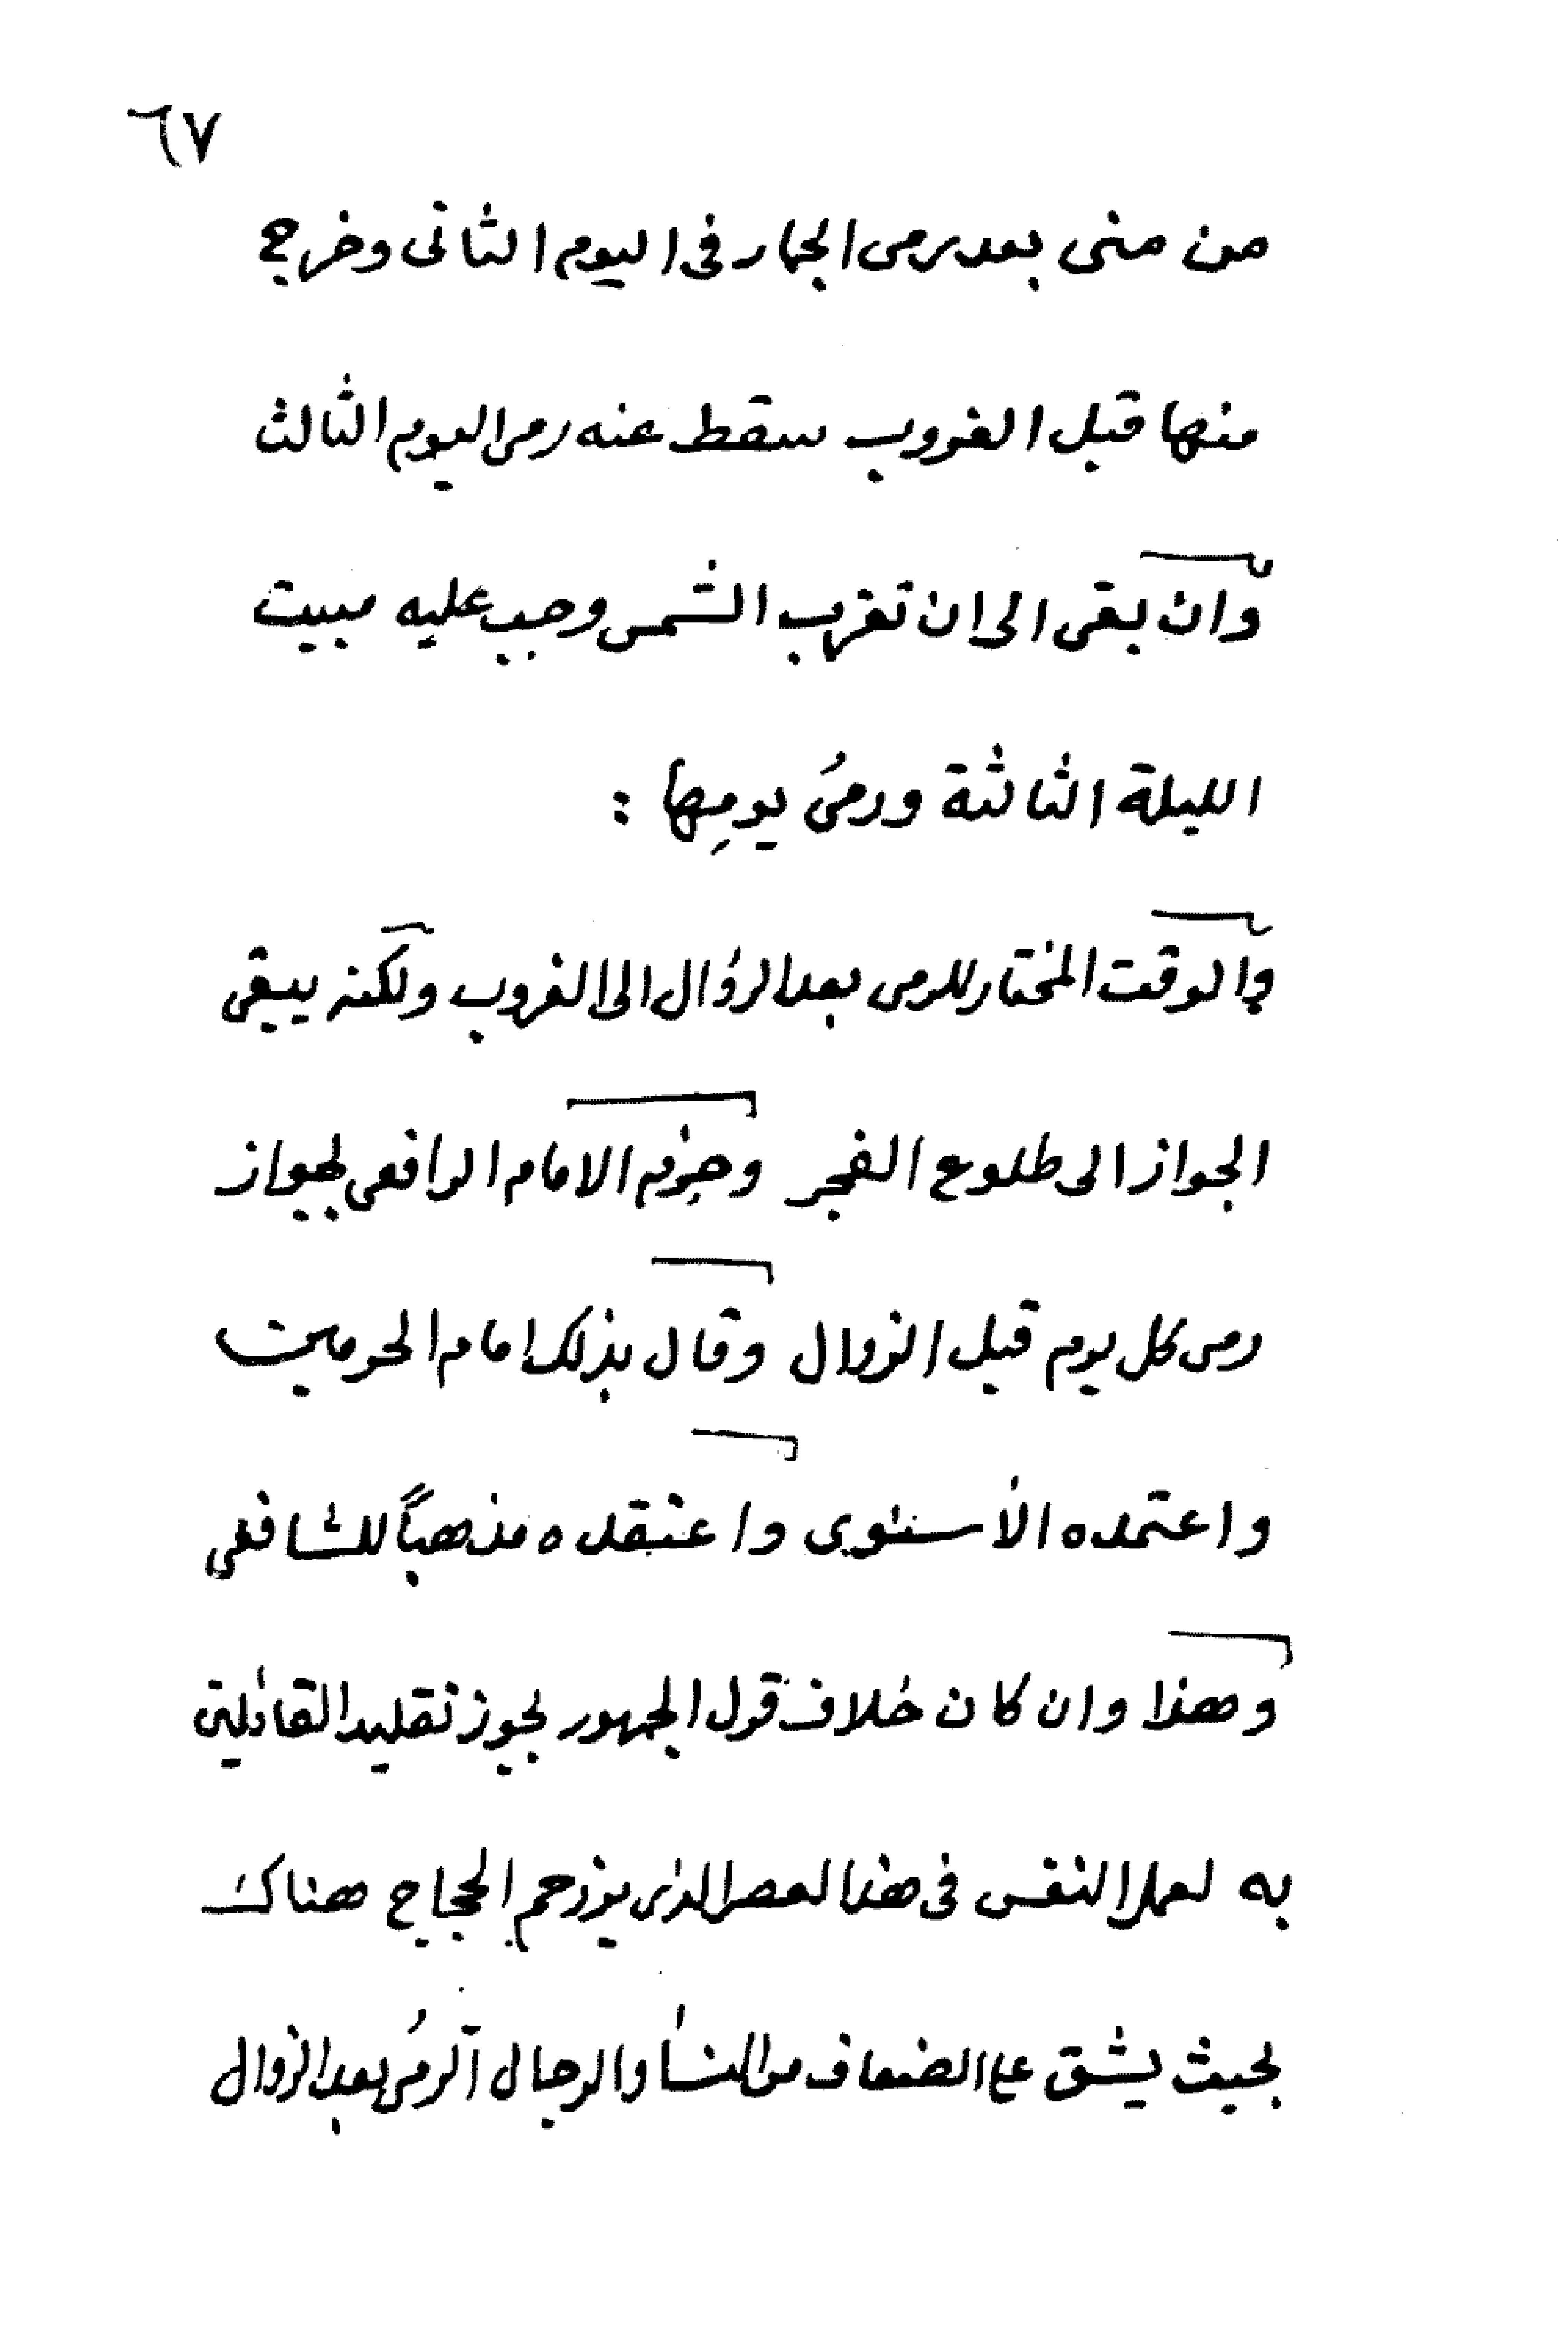 ٦٧
من منى بعد رمى الجمار فى اليوم الثانى وخرج
منها قبل الغروب سقط عنه رمى اليوم الثالث
وان بقى الى ان تغرب الشمس وجب عليه مبيت
الليلة الثالثة ورمىُ يومِها :
والوقت المختار للرمى بعد الزوال الى الغروب ولكنه يبقى
الجواز الى طلوع الفجر وجزم الامام الرافعى بجواز
رمى كل يوم قبل الزوال وقال بذلك امام الحرمين
واعتمده الأسنوى واعتقده مذهباً للشافعى
وهذا وان كان خلاف قول الجمهور يجوز تقليد القائلين
به لعمل النفس فى هذا العصر الذى يزدحم الحجاج هناك
بحيث يشق على الضعاف من النسأ والرجال الرمىُ بعد الزوال